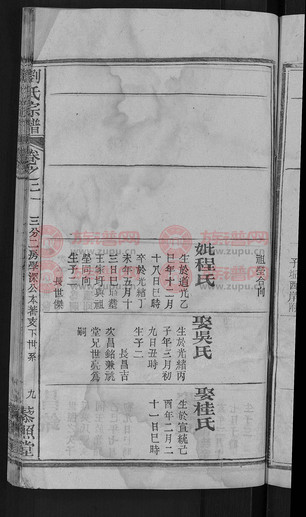 劉氏宗譜
卷之二
三分二房學深公本蕎支下世系
九
紫照堂
祖塋合向
妣程氏
生於道光乙
巳年十二月
十八日巳時
卒於光緒丁
未年五月十
三日巳時墓
王家圩與祖
塋同向
生子二
長世傑
娶吳氏
生於光緒丙
子年三月初
九日丑時
生子二
長昌吉
次昌銘兼祧
堂兄世英為
嗣
娶桂氏
生於宣統己
酉年二月二
十一日巳時